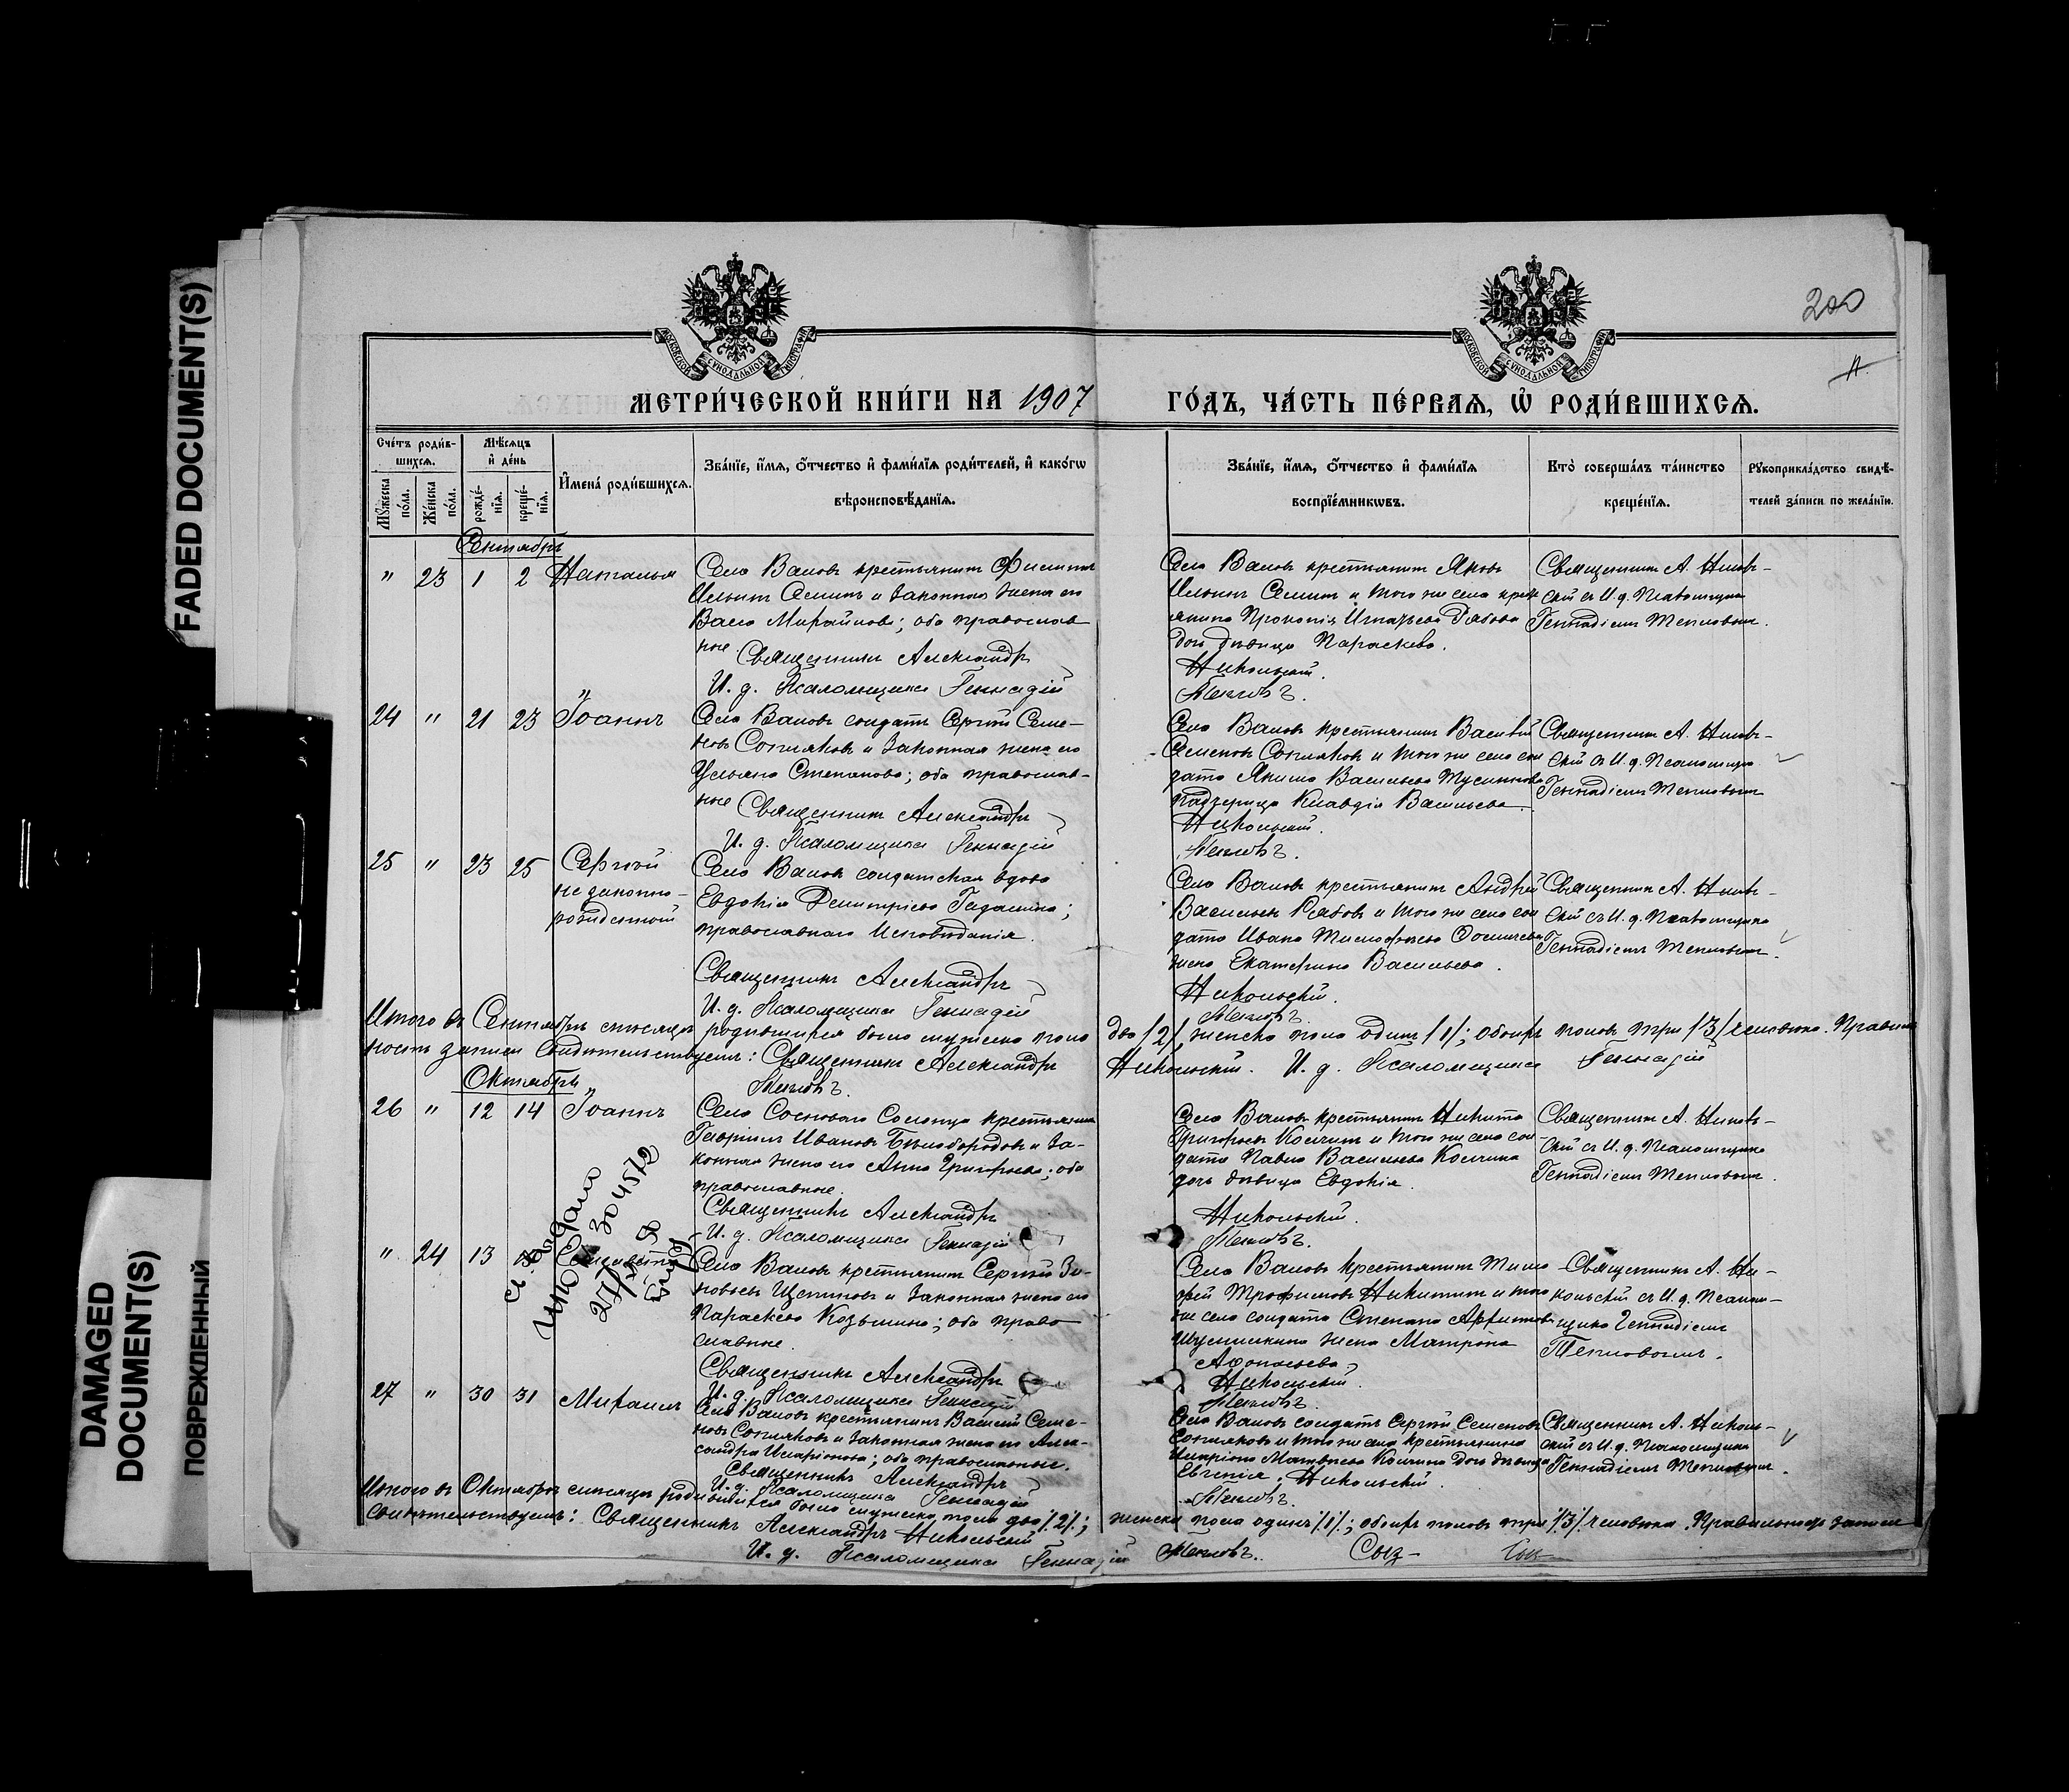 FADED DOCUMENT(S)
DAMAGED
DOCUMENT(S)
ПОВРЕЖДЕННЫЙ
200
МОСКОВСКОЙ СѴНОДАЛЬНОЙ ТИПОГРАФІИ
МОСКОВСКОЙ СѴНОДАЛЬНОЙ ТИПОГРАФІИ
МЕТРИ́ЧЕСКОЙ КНИ́ГИ НА 1907
ГО́ДЪ, ЧА́СТЬ ПЕ́РВАЯ, Ѡ РОДИ́ВШИХСЯ.
Сче́тъ роди́в-
шихся.
Мѣ́сяцъ
и де́нь
Мꙋ́жеска по́ла.
Же́нска по́ла.
рожде́-
нїя.
креще́-
нїя.
И҆мена́ роди́вшихся.
Зва́нїе, и҆́мя, о҆́тчество и҆ фами́лїя роди́телей, и҆ како́гѡ
вѣроисповѣ́данїя.
Зва́нїе, и҆́мя, о҆́тчество и҆ фами́лїя
воспрїе́мникѡвъ.
Кто̀ соверша́лъ та́инство
креще́нїя.
Рꙋкоприкла́дство свидѣ́-
телей за́писи по жела́нїю.
Сентябрь
" 23 1 2 Наталья
Село Валовъ крестьянинъ Филиппъ
Ильинъ Семинъ и законная жена его
Васса Михайлова; оба православ
ные
Священникъ Александръ
И. д. Псаломщика Геннадій
Село Валовъ крестьянинъ Яковъ
Ильинъ Семинъ и того же села крест
янина Прокопія Игнатьева Рябова
дочь дѣвица Параскева.
Никольскій.
Тепловъ.
Священникъ А. Николь-
скій съ И. д. Псаломщика
Геннадіемъ Тепловымъ.
24 " 21 23 Іоаннъ
Село Валовъ солдатъ Сергій Семе-
новъ Сопляковъ и законная жена его
Ульяна Степанова; оба православ-
ные
Священникъ Александръ
И. д. Псаломщика Геннадій
Село Валовъ крестьянинъ Василій
Семеновъ Сопляковъ и того же села сол
дата Якима Васильева
падчерица Клавдія Васильева.
Никольскій.
Тепловъ.
Священникъ А. Николь-
скій съ И. д. Псаломщика
Геннадіемъ Тепловымъ
25 " 23 25 Сергій
незаконно-
рожденный
Село Валовъ солдатская вдова
Евдокія Димитріева;
православнаго исповѣданія.
Священникъ Александръ
И. д. Псаломщика Геннадій
Село Валовъ крестьянинъ Андрей
Васильевъ Рябовъ и того же села сол
дата Ивана Тимофеева
жена Екатерина Васильева.
Никольскій.
Тепловъ.
Священникъ А. Николь-
скій съ И. д. Псаломщика
Геннадіемъ Тепловымъ.
Итого въ Сентябрѣ мѣсяцѣ родившихся было мужеска пола два /2/, женска пола одинъ /1/; обоихъ половъ три /3/ человѣка. Правиль
ность записи свидѣтельствуемъ: Священникъ Александръ Никольскій. И. д. Псаломщика Геннадій
Тепловъ.
Октябрь
26 " 12 14 Іоаннъ
Село Сосноваго Солонца крестьянинъ
Георгій Ивановъ Бѣлобородовъ и за-
конная жена его Анна Григорьева; оба
православные.
Священникъ Александръ
И. д. Псаломщика Геннадій
Село Валовъ крестьянинъ Никита
Григорьевъ Колчинъ и того же села сол-
дата Павла Васильева Колчина
дочь дѣвица Евдокія.
Никольскій.
Тепловъ.
Священникъ А. Николь-
скій съ И. д. Псаломщика
Геннадіемъ Тепловымъ.
304572
" 24 13
Село Валовъ крестьянинъ Сергій Зи-
новьевъ и законная жена его
Параскева Козьмина; оба право
славные.
Священникъ Александръ
И. д. Псаломщика Геннадій
Село Валовъ крестьянинъ Тимо
фей Трофимовъ Никитинъ и того
же села солдата Степана
жена Матрона
Афонасьева
Никольскій.
Тепловъ.
Священникъ А. Ни-
кольскій съ И. д. Псалом-
щика Геннадіемъ
Тепловымъ.
27 " 30 31 Михаилъ
Село Валовъ крестьянинъ Василій Семе-
новъ Сопляковъ и законная жена его Алек-
сандра Иларіонова; оба православные.
Священникъ Александръ
И. д. Псаломщика Геннадій
Село Валовъ солдатъ Сергій Семеновъ
Сопляковъ и того же села крестьянина
Иларіона Матвѣева Колчина дочь дѣвица
Евгенія. Никольскій.
Тепловъ.
Священникъ А. Николь-
скій съ И. д. Псаломщика
Геннадіемъ Тепловымъ.
Итого въ Октябрѣ мѣсяцѣ родившихся было мужеска пола два /2/; женска пола одинъ /1/; обоихъ половъ три /3/ человѣка. Правильность записи
свидѣтельствуемъ: Священникъ Александръ Никольскій
И. д. Псаломщика Геннадій Тепловъ.